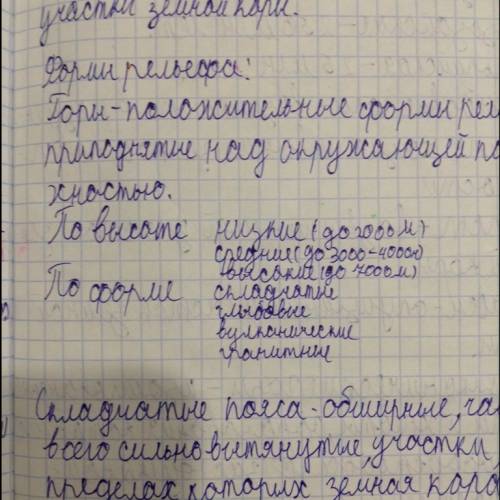 участки земной коры.
Формы рельефа:
Горы - положительные формы рел
приподнятые над окружающей по
хностью.
По высоте низкие (до 2000 м)
средние (до 3000-4000м)
высокие (до 7000 м)
По форме складчатые
глыбовые
вулканические
гранитные
Складчатые пояса - обширные, ча
всего сильно вытянутые, участки
пределах которых земная кора